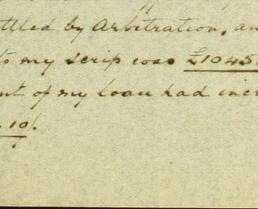 ttled by Arbitration, an
to my scrip was £1045
nt of my loan had incr
.10/.